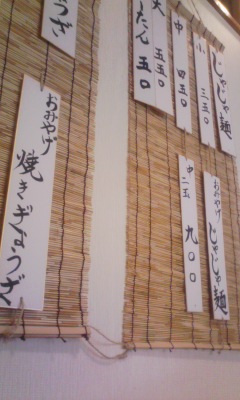 じゃじゃ麺
小 三五〇
中 四五〇
大 五五〇
たん 五〇
おみやげ
じゃじゃ麺
中二玉 九〇〇
おみやげ
焼きぎょうざ
うざ